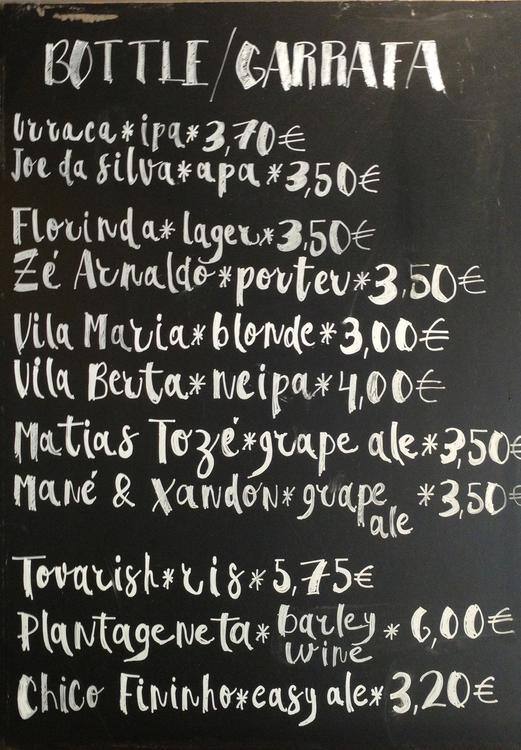 BOTTLE/GARRAFA
Urraca*ipa*3,70€
Joe da Silva*apa*3,50€
Florinda*lager*3,50€
Zé Arnaldo*porter*3,50€
Vila Maria*blonde*3,00€
Vila Berta*neipa*4,00€
Matias Tozé*grape ale*3,50€
Mané & Xandon*grape ale*3,50€
Tovarish*ris*5,75€
Plantageneta*barley wine*6,00€
Chico Fininho*easy ale*3,20€